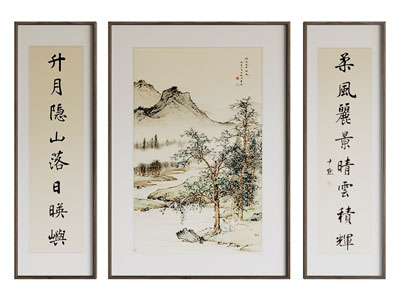 柔風麗景晴雲積輝
升月隐山落日暎嶼